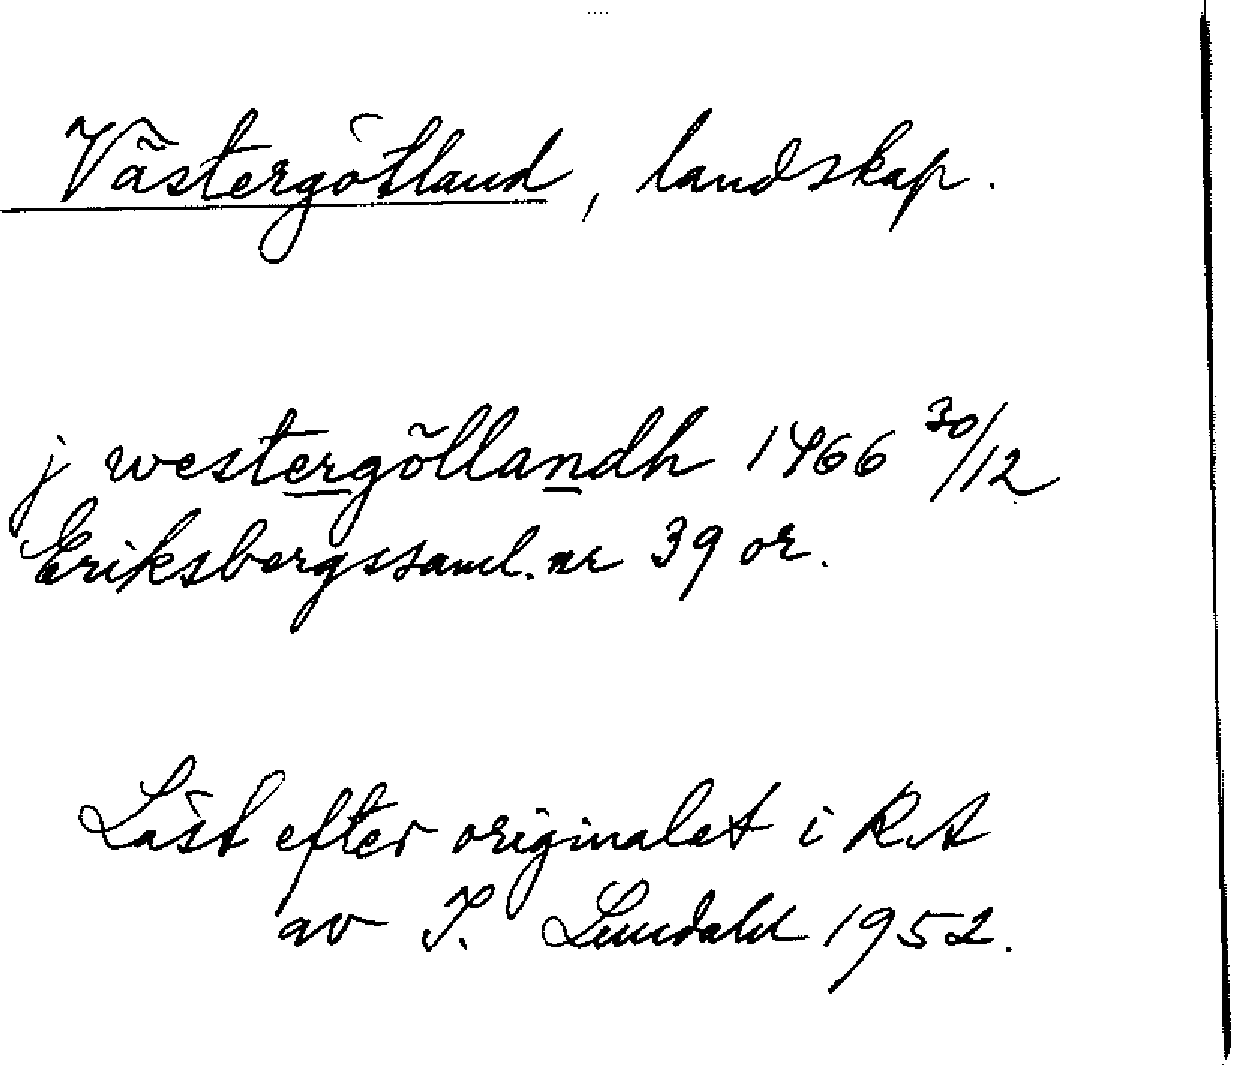 Västergötland, landskap.
j westergöllandh 1466 30/12
Eriksbergssaml. nr 39 or.
Läst efter originalet i RA
av I. Lundahl 1952.